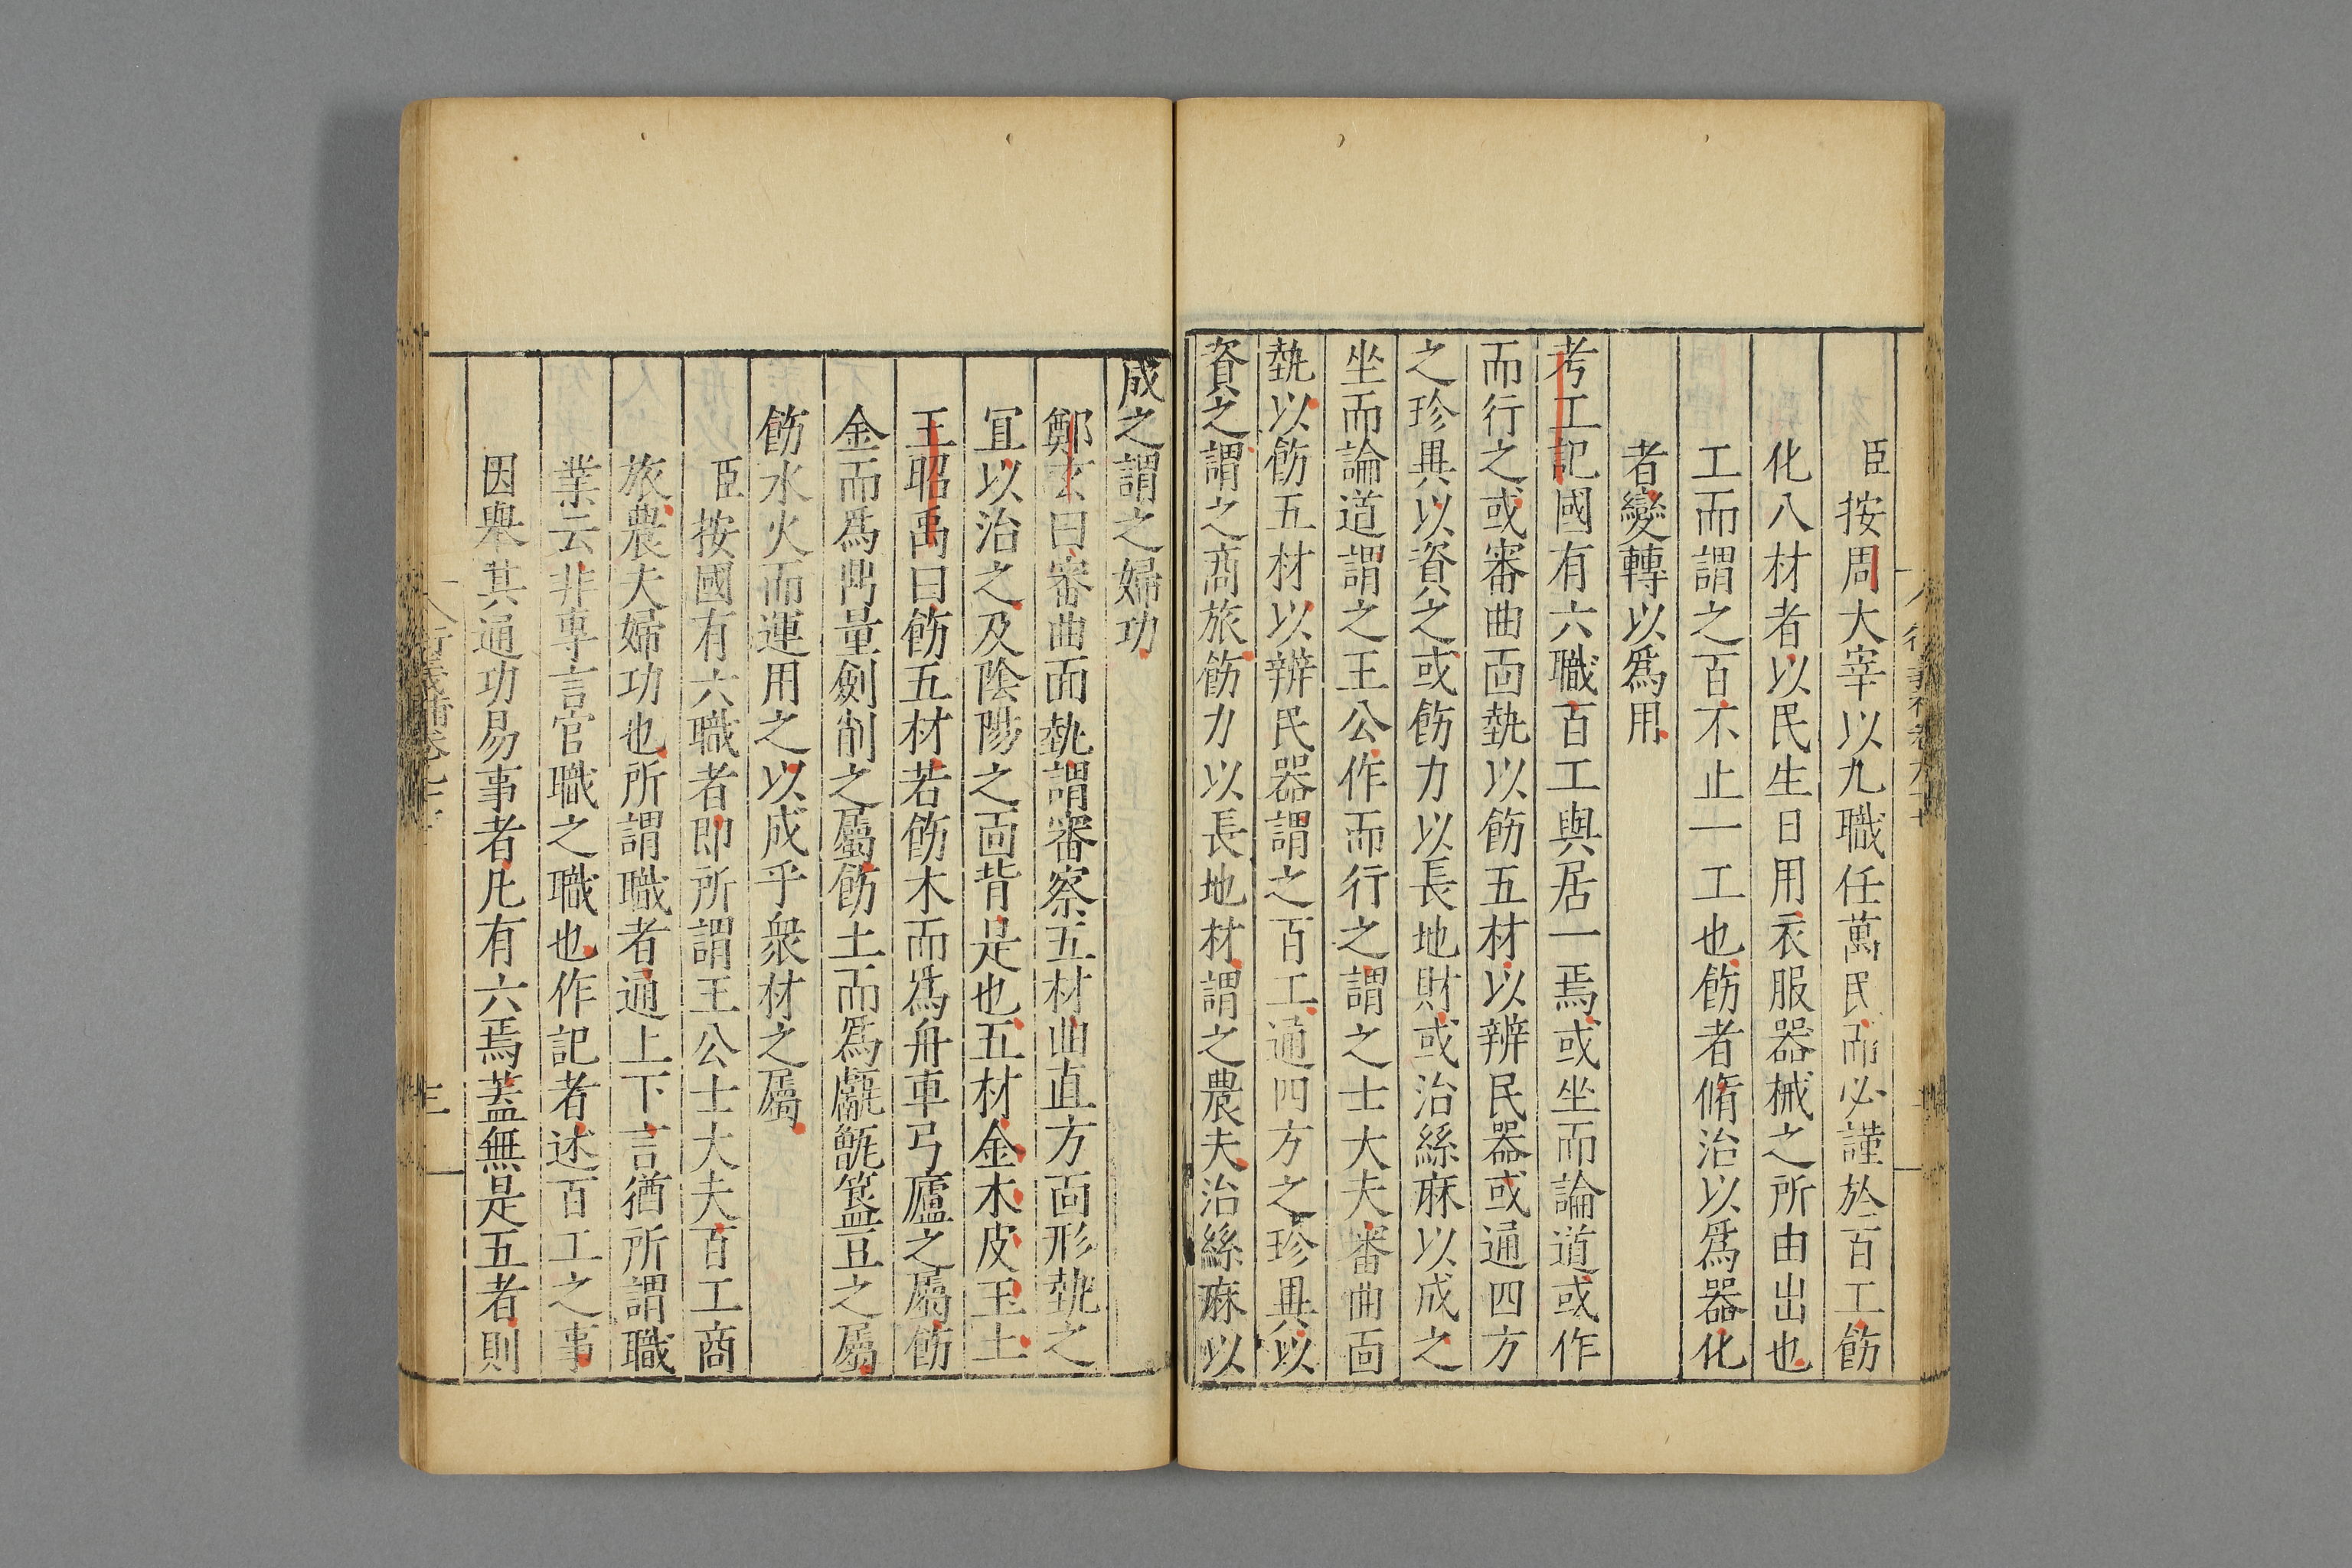 臣按周大宰以九職任萬民而必謹於百工飭
化八材者以民生日用衣服器械之所由出也
工而謂之百不止一工也飭者脩治以爲器化
者變轉以爲用
考工記國有六職百工與居一焉或坐而論道或作
而行之或審曲面埶以飭五材以辨民器或通四方
之珍異以資之或飭力以長地財或治絲麻以成之
坐而論道謂之王公作而行之謂之士大夫審曲面
埶以飭五材以辨民器謂之百工通四方之珍異以
資之謂之商旅飭力以長地材謂之農夫治絲麻以
成之謂之婦功
鄭玄曰審曲面埶謂審察五材曲直方面形埶之
宜以治之及陰陽之面背是也五材金木皮玉土
王昭禹曰飭五材若飭木而爲舟車弓廬之屬飭
金而爲鬴量劍削之屬飭土而爲甗甑簋豆之屬
飭水火而運用之以成乎衆材之屬
臣按國有六職者即所謂王公士大夫百工商
旅農夫婦功也所謂職者通上下言猶所謂職
業云非專言官職之職也作記者述百工之事
因舉其通功易事者凡有六焉蓋無是五者則